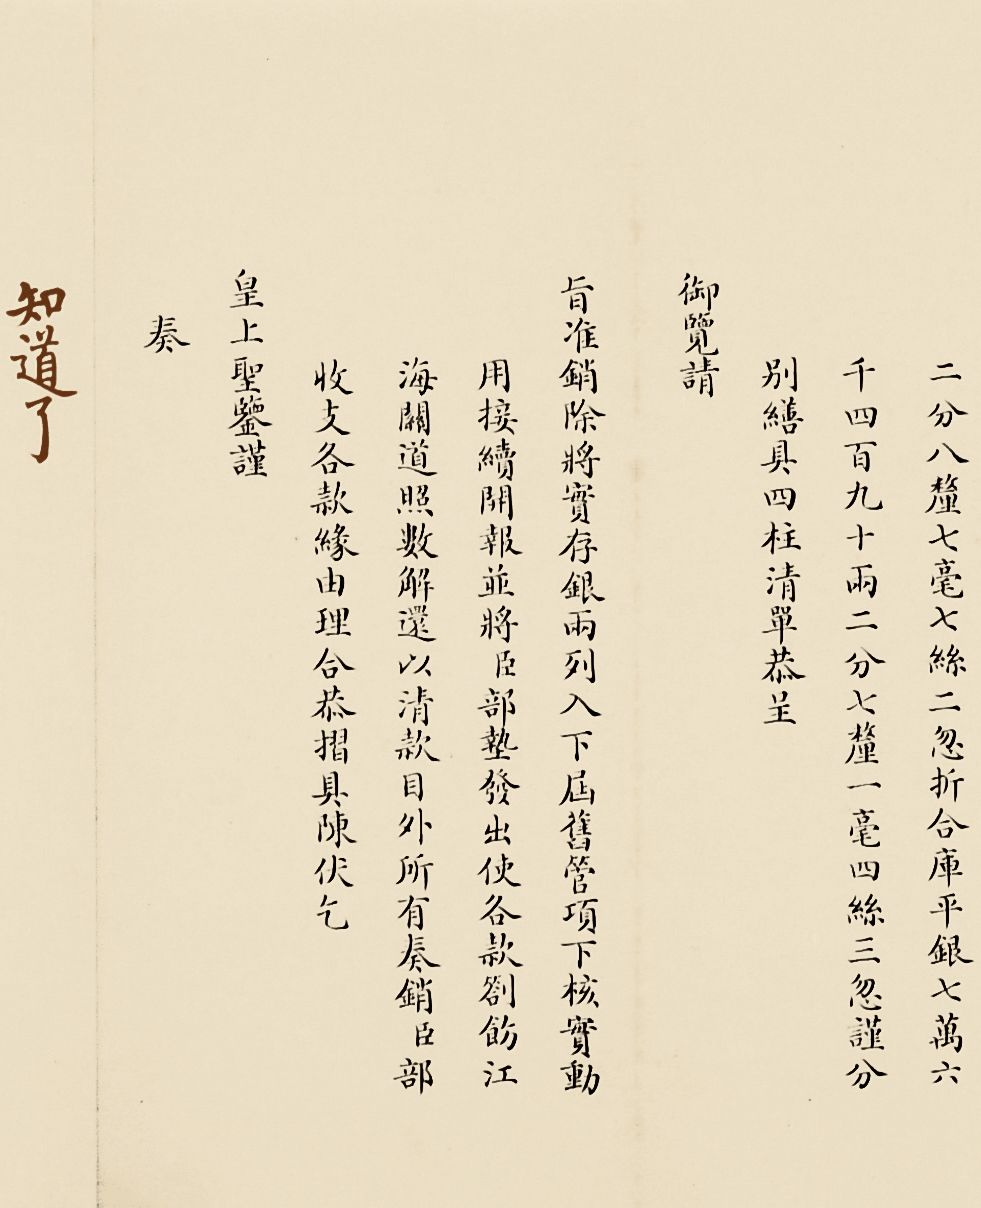 二分八釐七毫七絲二忽折合庫平銀七萬六
千四百九十兩二分七釐一毫四絲三忽謹分
別繕具四柱清單恭呈
御覽請
旨准銷除將實存銀兩列入下屆舊管項下核實動
用接續開報並將臣部墊發出使各款劄飭江
海關道照數解還以清款目外所有奏銷臣部
收支各款緣由理合恭摺具陳伏乞
皇上聖鑒謹
奏
知道了